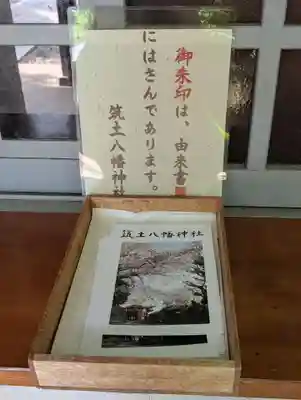 御朱印は、由来書
にはさんであります。
筑土八幡神社
筑土八幡神社